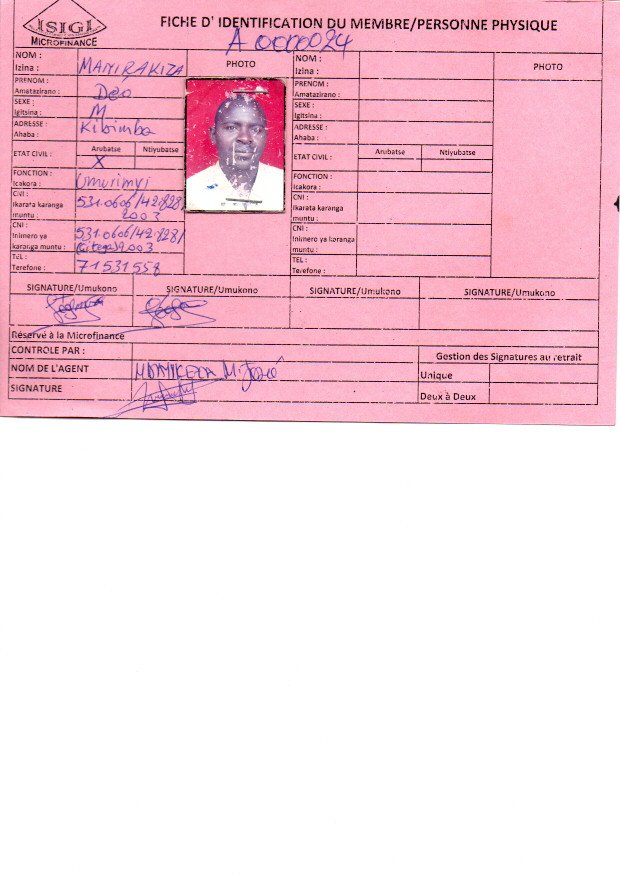 ISIGI
MICROFINANCE
FICHE D' IDENTIFICATION DU MEMBRE/PERSONNE PHYSIQUE
A 0000024
NOM :
Izina :
MANIRAKIZA
PHOTO
PRENOM :
Amatazirano :
Deo
SEXE :
Igitsina :
M
ADRESSE :
Ahaba :
Kibimba
ETAT CIVIL :
Arubatse
Ntiyubatse
X
FONCTION :
Icakora :
Umurimyi
CNI :
Ikarata karanga
muntu :
531.0606/42.828/
2003
CNI :
Inimero ya
karanga muntu :
531.0606/42.828/
(Gitega)2003
TEL :
Terefone :
71531558
NOM :
Izina :
PHOTO
PRENOM :
Amatazirano :
SEXE :
Igitsina :
ADRESSE :
Ahaba :
ETAT CIVIL :
Arubatse
Ntiyubatse
FONCTION :
Icakora :
CNI :
Ikarata karanga
muntu :
CNI :
Inimero ya karanga
muntu :
TEL :
Terefone :
SIGNATURE/Umukono
SIGNATURE/Umukono
SIGNATURE/Umukono
SIGNATURE/Umukono
Réservé à la Microfinance
CONTROLE PAR :
Gestion des Signatures au retrait
NOM DE L'AGENT
M. José
Unique
SIGNATURE
Deux à Deux